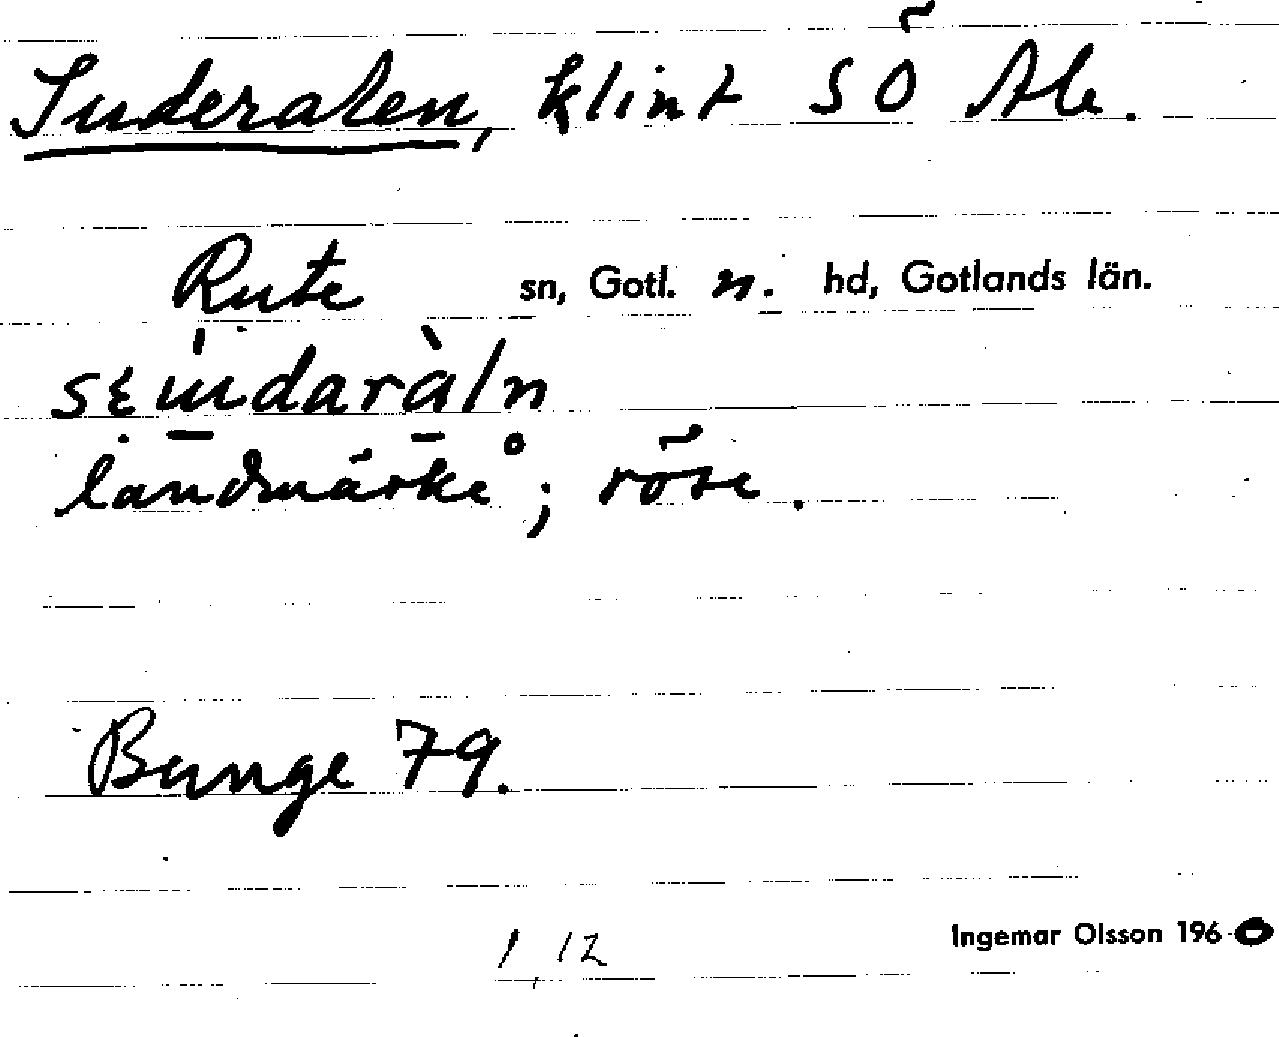 Suderalen, klint SÖ Ale.
Rute sn, Gotl. n. hd, Gotlands län.
sɛu̇daràln
landmärke; röse.
Bunge 79.
1,12
Ingemar Olsson 1960